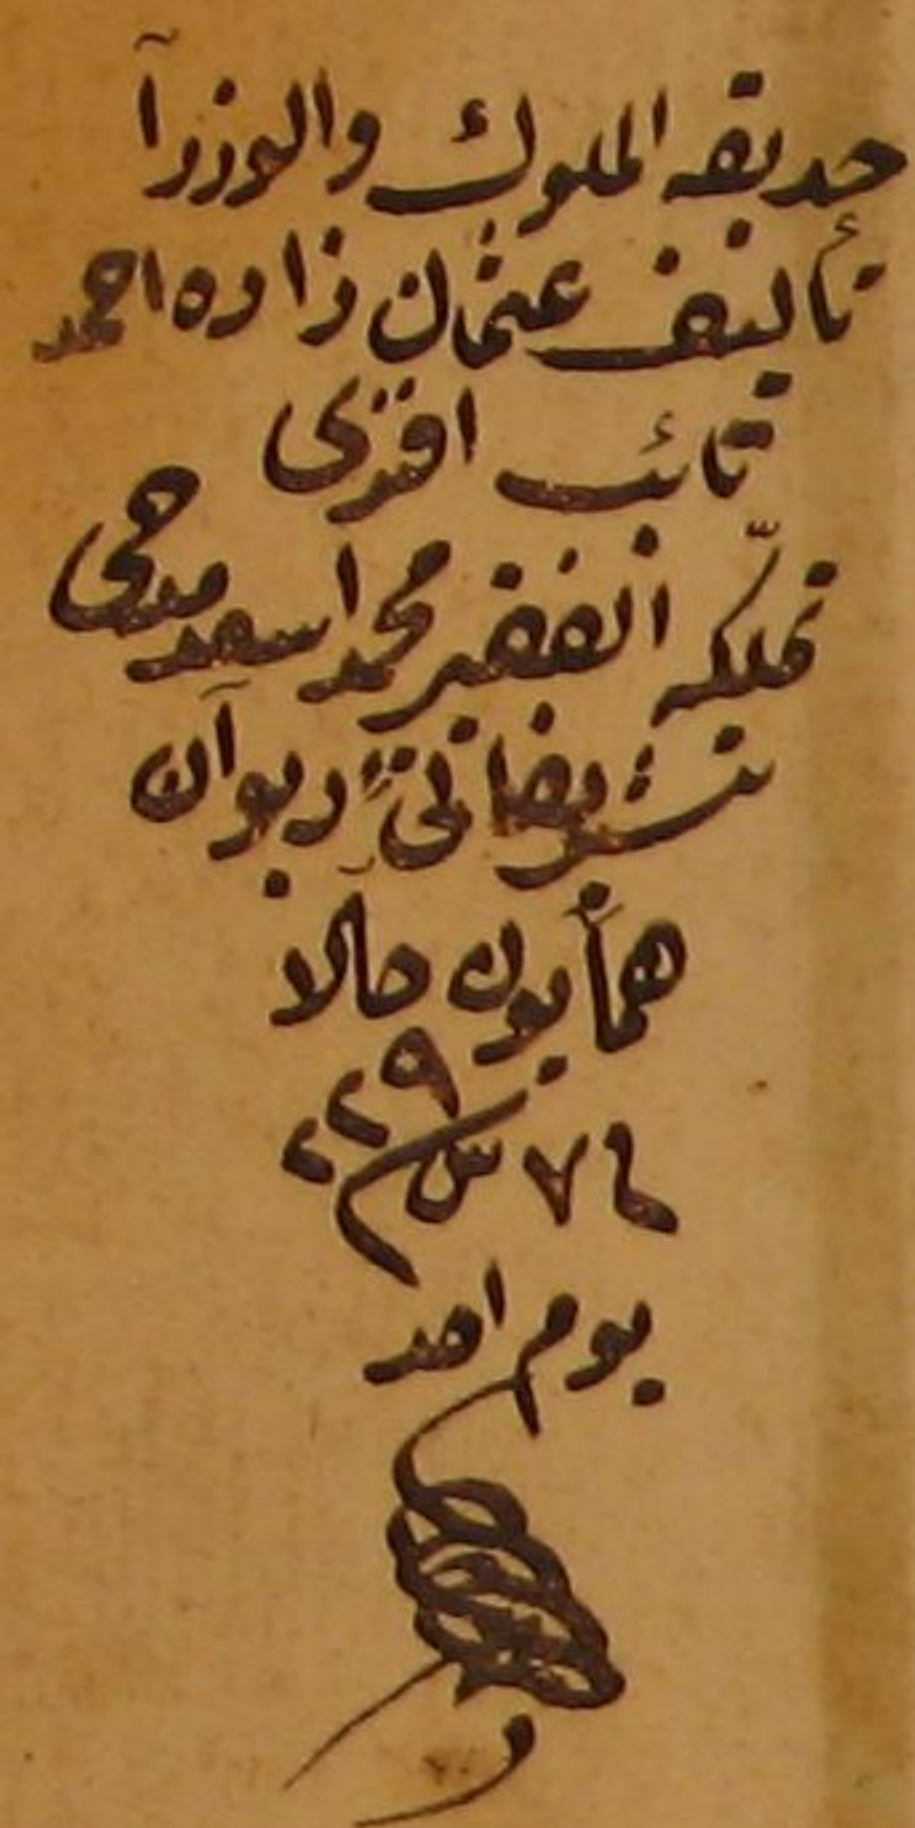 حديقه الملوك والوزرآ
تأليف عثمان زاده احمد
تائب افندى
تملكه الفقير محمد اسعد
تشريفاتئ ديوان
همايون حالا
يوم احد